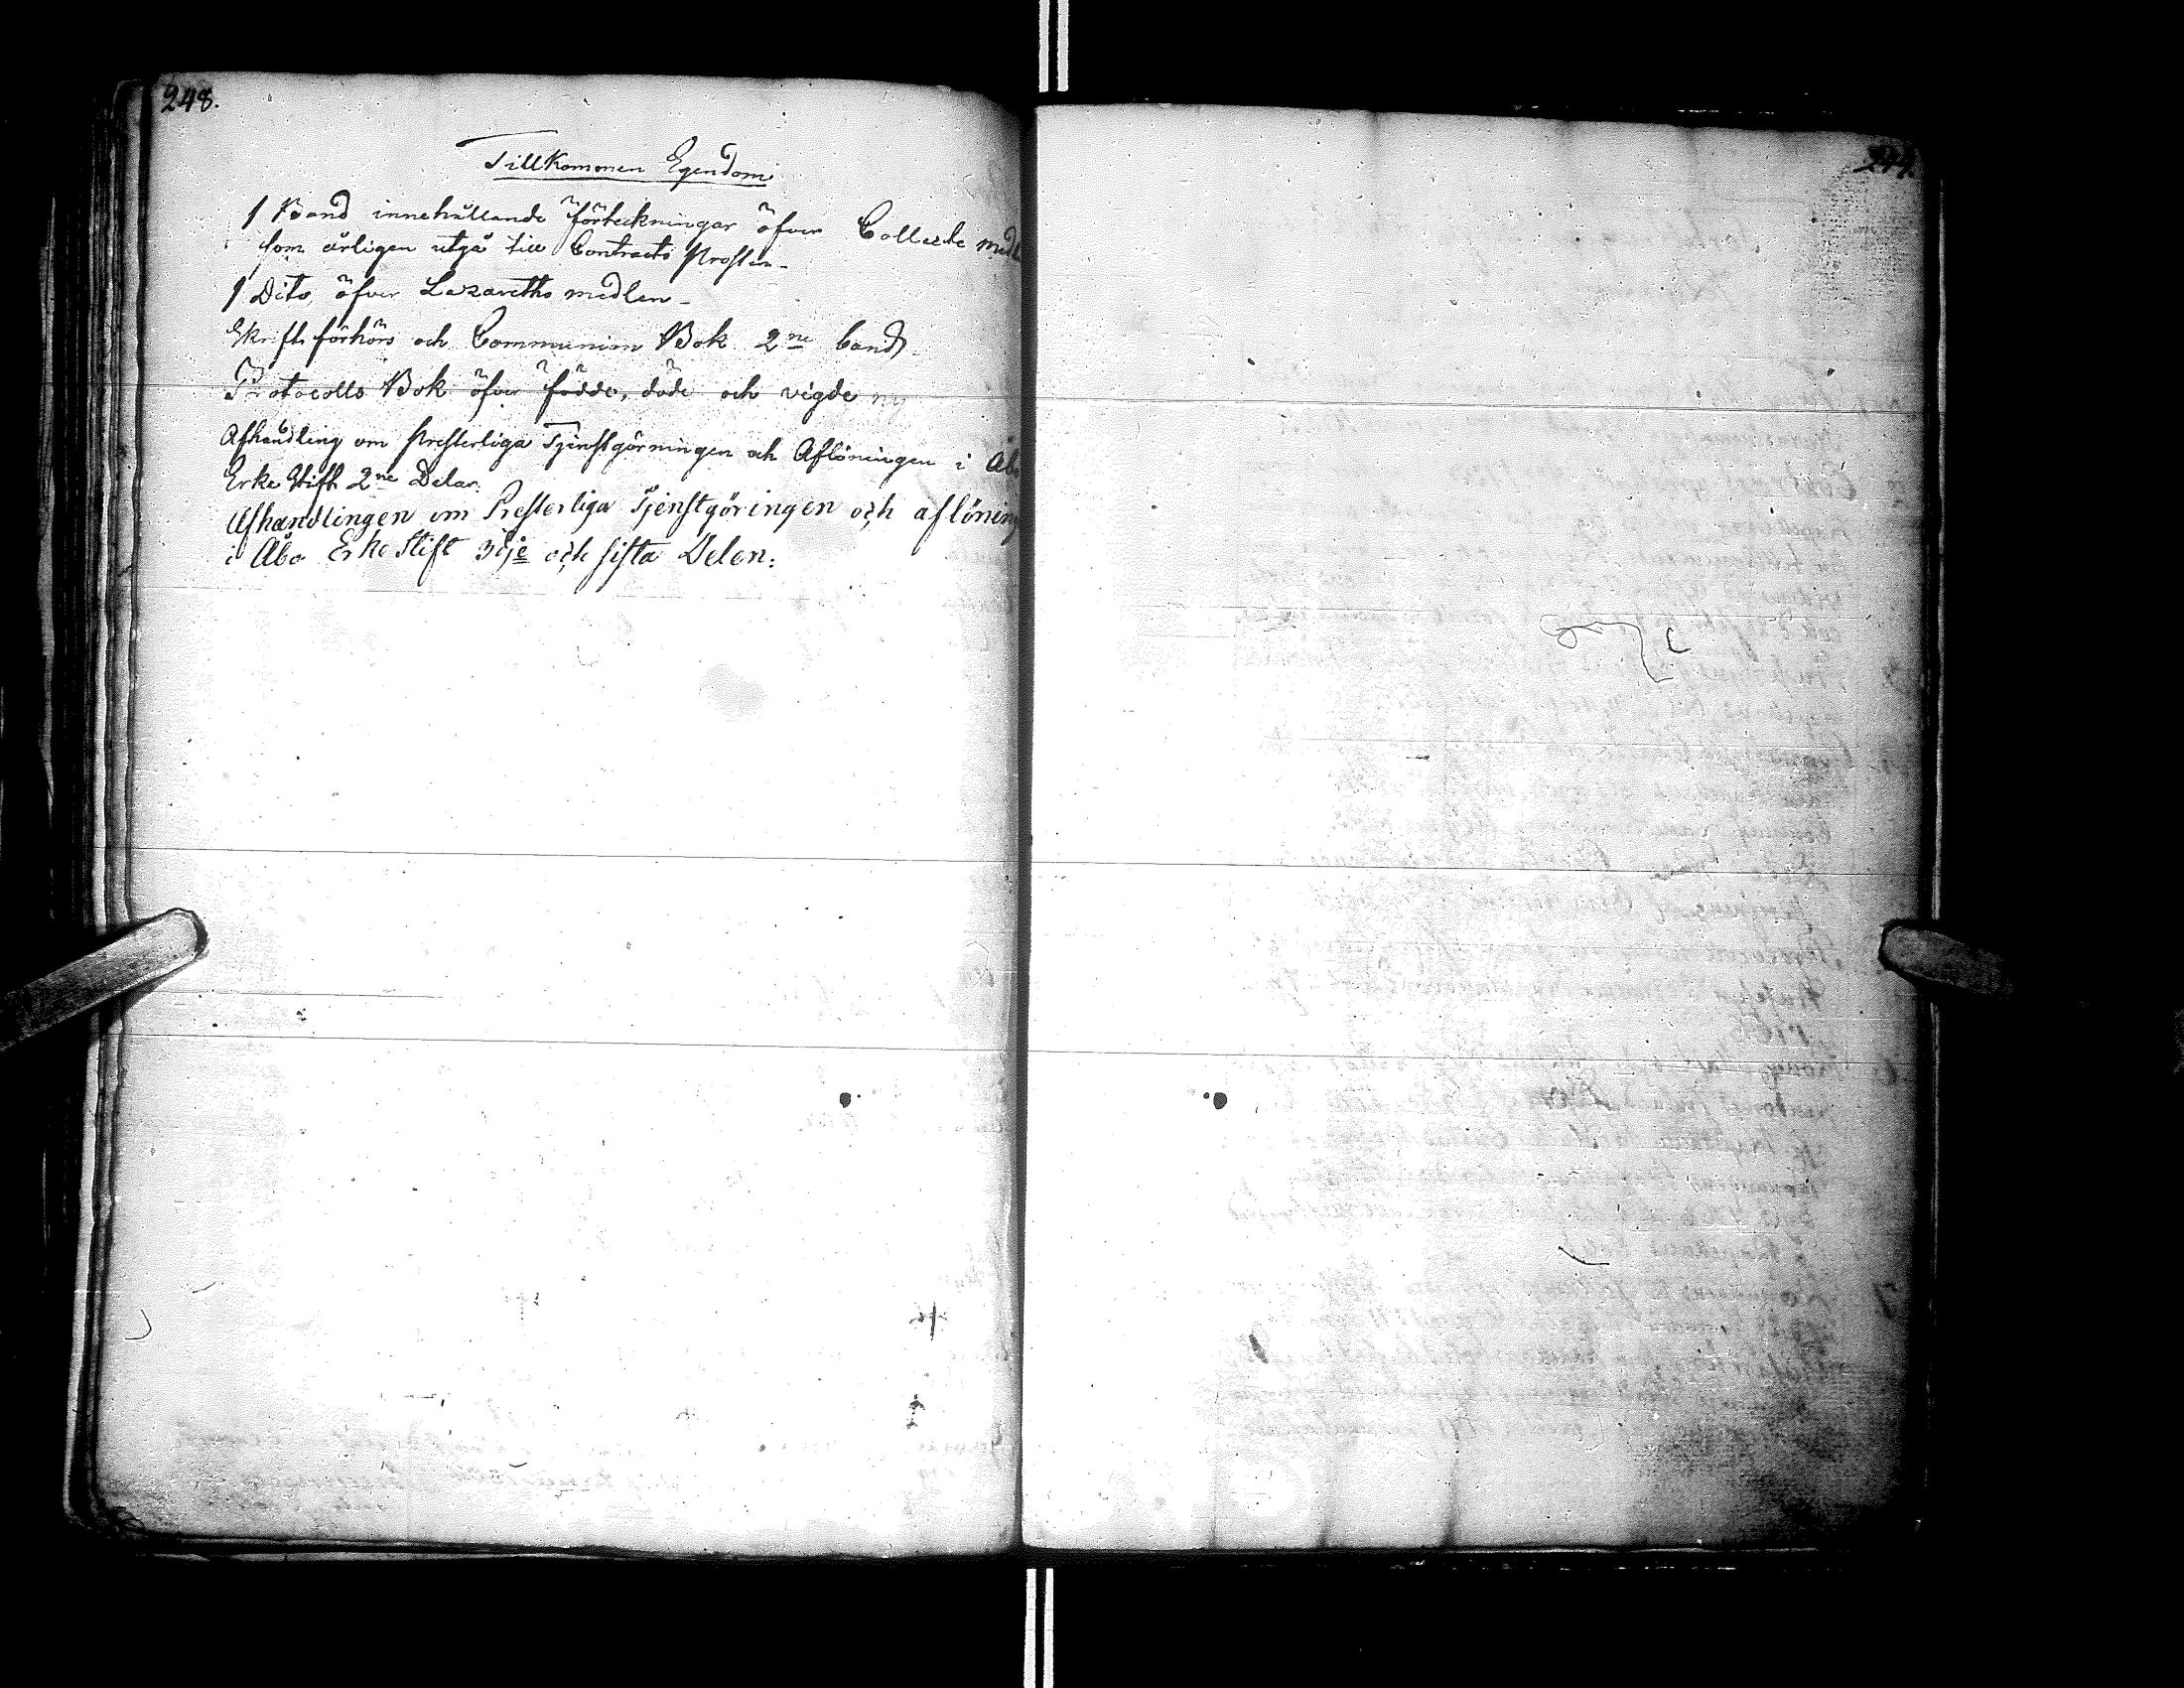 248.
Tillkommen Egendom
1 Band innehållande förteckningar öfver Collecte medl
som årligen utgå till Contracts Prosten -
1 Dito öfver Lazaretts medlen -
Skriftförhörs och Communion Bok 2ne band
Protocolls Bok öfver födde, döde och vigde ny
Afhandling om Presterliga Tjenstgörningen och Aflöningen i Åbo
Erke Stift 2ne Delar.
Afhandlingen om Presterliga Tjenstgöringen och aflöning
i Åbo Erke Stift 3dje och sista Delen.
249.